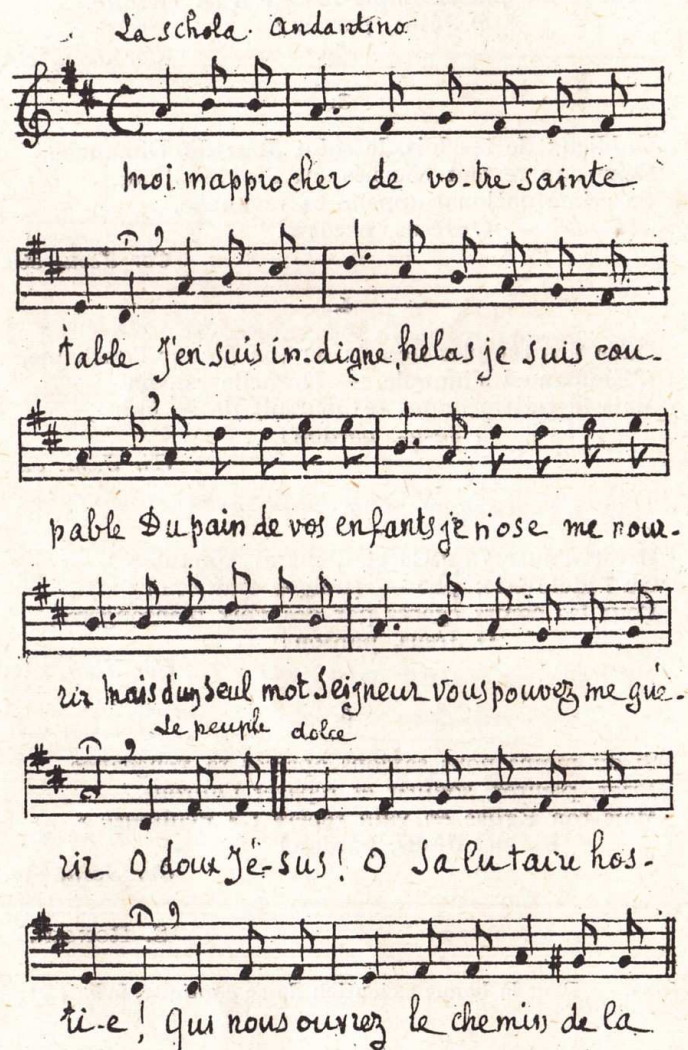 La schola. Andantino
moi mapprocher de vo-tre sainte
table J'en suis in-digne hélas je suis cou-
pable Du pain de vos enfants je n'ose me nour-
rir Mais d'un seul mot Seigneur vous pouvez me gué-
Le peuple dolce
rir O doux Jé-sus! O Salutaire hos-
ti-e! Qui nous ouvrez le chemin de la